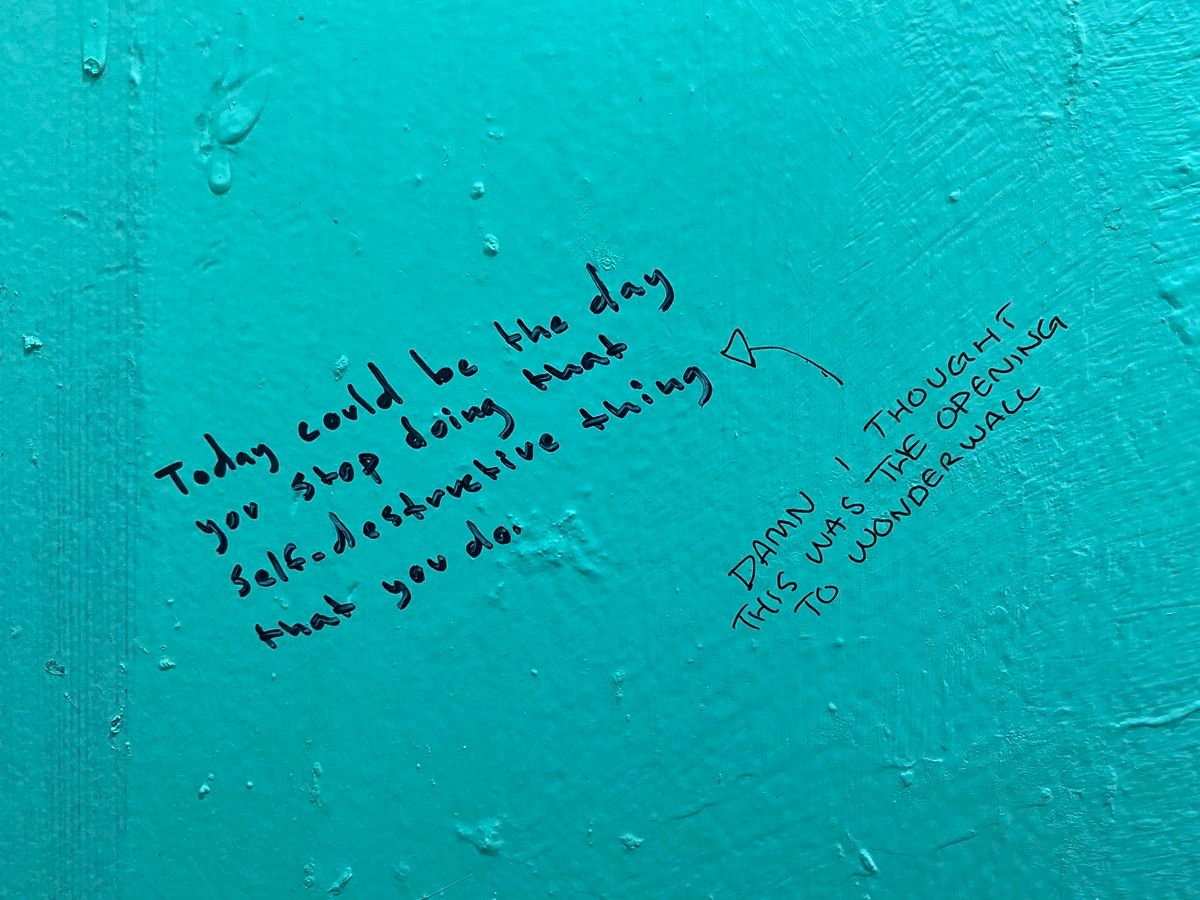 Today could be the day
you stop doing that
self-destructive thing
that you do.
DAMN I THOUGHT
THIS WAS THE OPENING
TO WONDERWALL